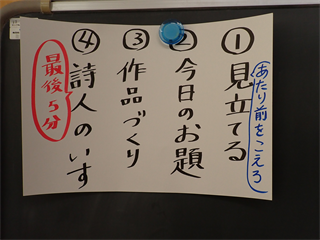 ①見立てる
あたり前をこえろ
②今日のお題
③作品づくり
④詩人のいす
最後5分